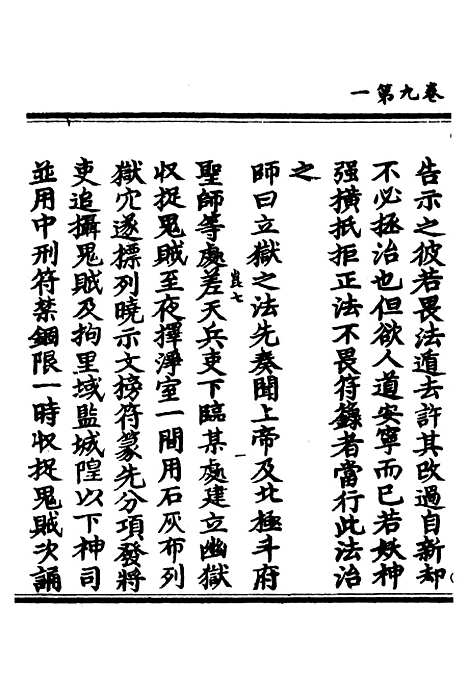 卷九第一
告示之彼若畏法遁去許其改過自新却
不必拯治也但欲人道安寧而已若妖神
强橫抵拒正法不畏符籙者當行此法治
之
師曰立獄之法先奏聞上帝及北極斗府
聖師等處差天兵吏下臨某處建立幽獄
收捉鬼賊至夜擇淨室一間用石灰布列
獄穴遂摽列曉示文榜符篆先分項發將
吏追攝鬼賊及拘里域監城隍以下神司
並用中刑符禁錮限一時收捉鬼賊次誦